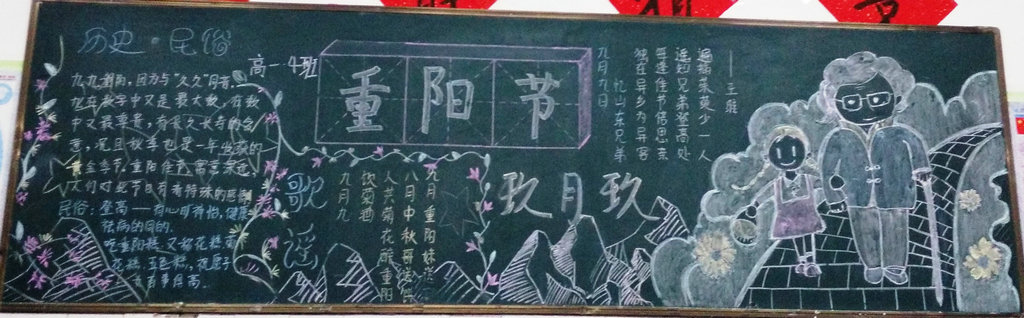 历史·民俗
高一4班
九九重阳，因为与“久久”同音，
九在数字中又是最大数，有
中又最尊贵，有长久长寿的含
意，况且秋季也是一年
黄金季节，重阳佳节，寓意深远，
人们对此节日有着特殊的感情
民俗：登高
祛病的目的。
吃重阳糕，又称花糕、菊
花糕、五色糕，
重阳节
歌谣
九月九
饮菊酒
人共菊花醉重阳
九月重阳
八月中秋
玖月玖
九月九日
忆山东兄弟
独在异乡为异客
每逢佳节倍思亲
遥知兄弟登高处
遍插茱萸少一人
——王维